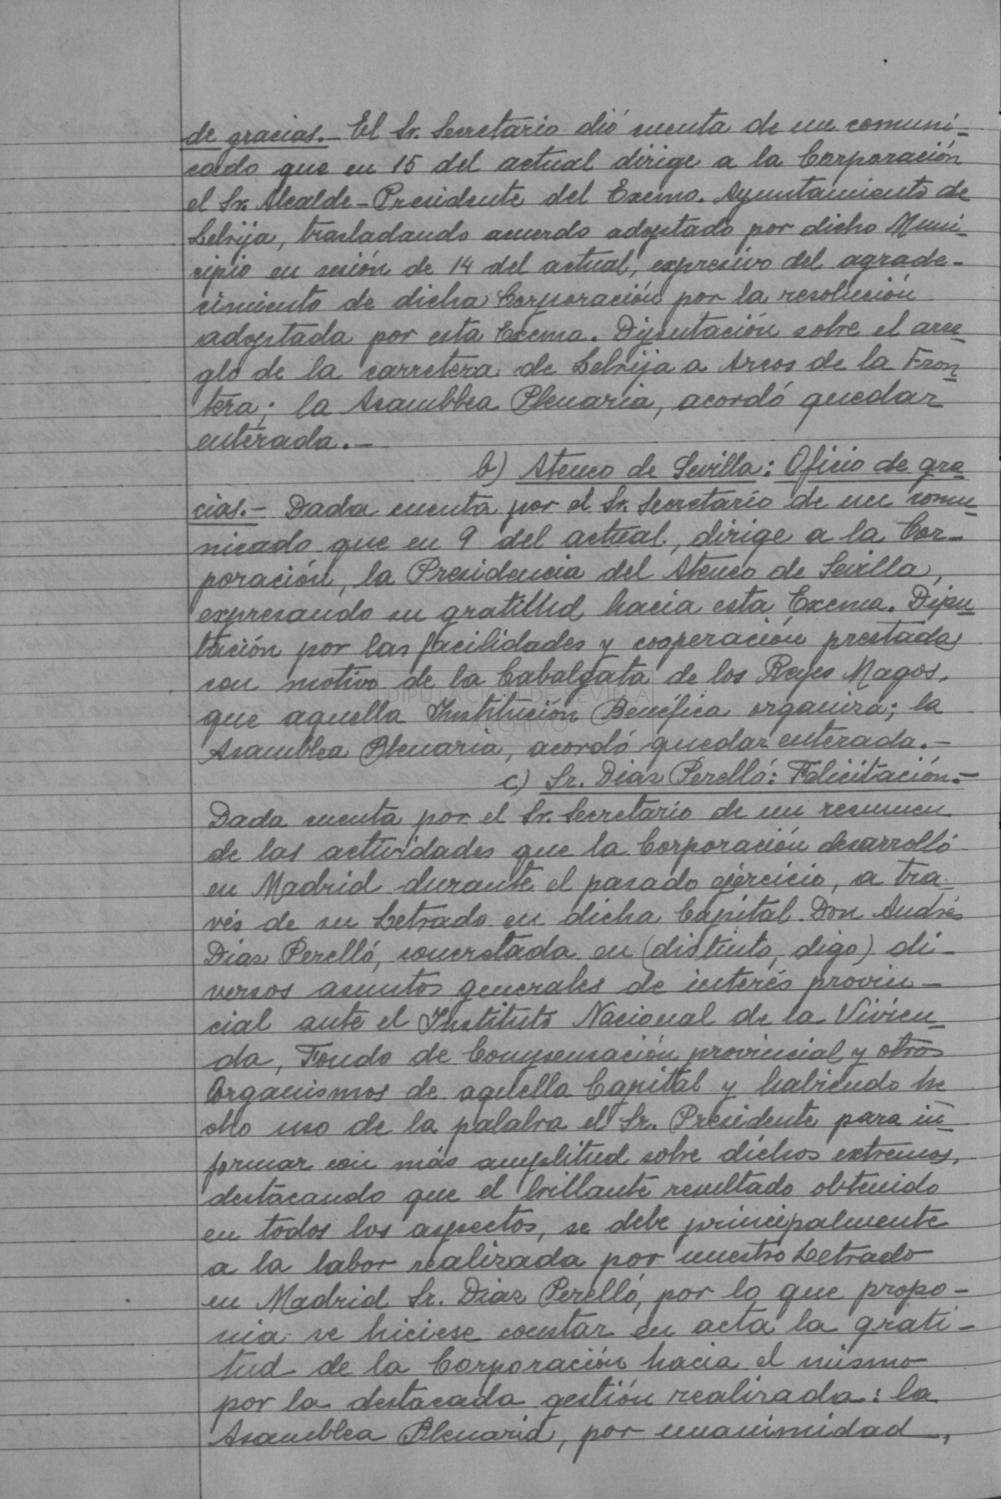 de gracias.- El Sr. Secretario dió cuenta de un comuni-
cado que en 15 del actual dirige a la Corporación
el Sr. Alcalde-Presidente del Excmo. Ayuntamiento de
Lebrija, trasladando acuerdo adoptado por dicho Muni-
cipio en sesión de 14 del actual, expresivo del agrade-
cimiento de dicha Corporación por la resolución
adoptada por esta Excma. Diputación sobre el arre
glo de la carretera de Lebrija a Arcos de la Fron-
tera; la Asamblea Plenaria, acordó quedar
enterada.-
b) Ateneo de Sevilla: Oficio de gra
cias.- Dada cuenta por el Sr. Secretario de un comu
nicado que en 9 del actual, dirige a la Cor-
poración, la Presidencia del Ateneo de Sevilla,
expresando su gratitud hacia esta Excma. Dipu
tación por las facilidades y cooperación prestada
con motivo de la Cabalgata de los Reyes Magos,
DIPUTACION DE SEVILLA
que aquella Institución Benéfica organiza; la
ARCHIVO
Asamblea Plenaria, acordó quedar enterada.-
c) Sr. Dias Perelló: Felicitación.-
Dada cuenta por el Sr. Secretario de un resumen
de las actividades que la Corporación desarrolló
en Madrid durante el pasado ejercicio, a tra-
vés de su Letrado en dicha Capital Don Andrés
Dias Perelló, concretada en (distinto, digo) di-
versos asuntos generales de interés provin-
cial ante el Instituto Nacional de la Vivien-
da, Fondo de Compensación provincial y otros
Organismos de aquella Capital y habiendo he
cho uso de la palabra el Sr. Presidente para in-
formar con más amplitud sobre dichos extremos,
destacando que el brillante resultado obtenido
en todos los aspectos, se debe principalmente
a la labor realizada por nuestro Letrado
en Madrid Sr. Dias Perelló, por lo que propo-
nia se hiciese constar en acta la grati-
tud de la Corporación hacia el mismo
por la destacada gestión realizada: la
Asamblea Plenaria, por unanimidad,